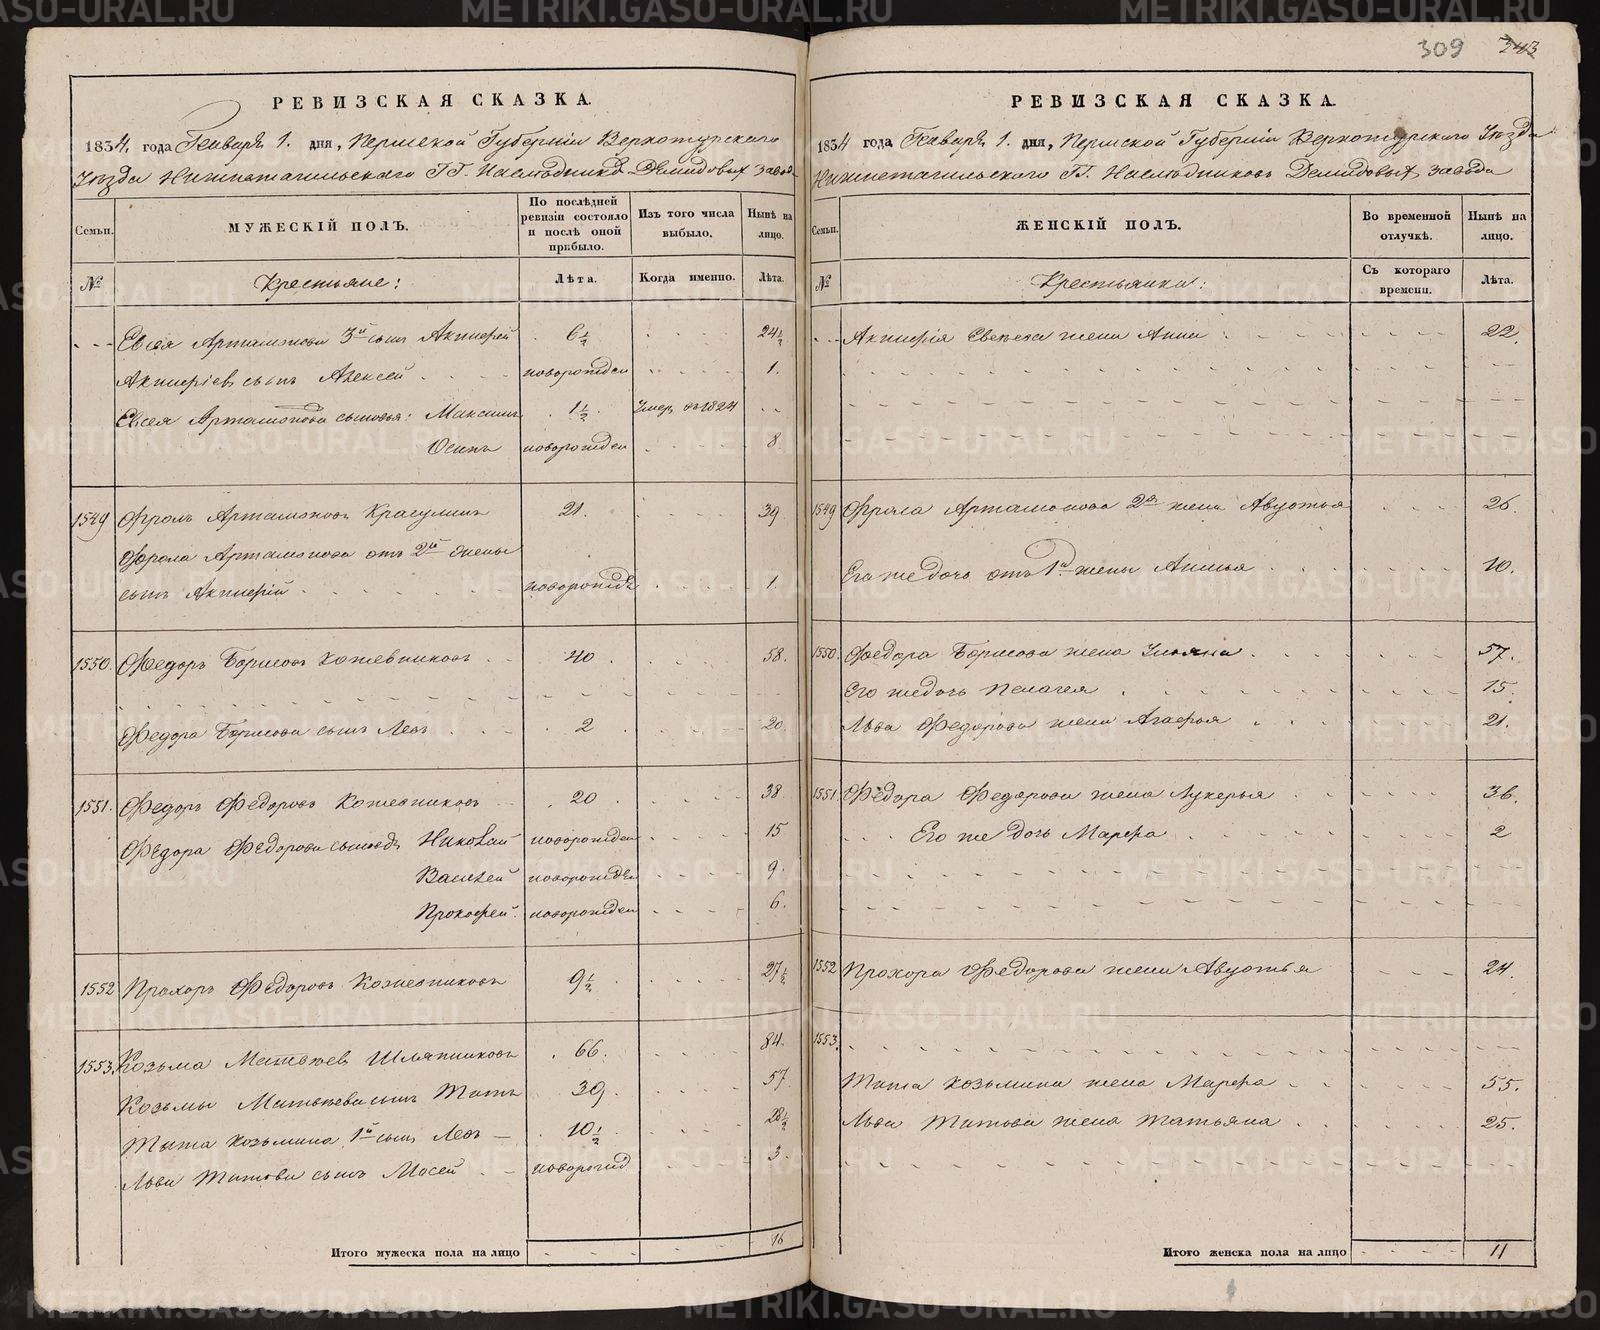 309 243
РЕВИЗСКАЯ СКАЗКА.
1834. года Генваря 1. дня, Пермской Губернiи Верхотурскаго
Уѣзда Нижнетагильскаго ГГ. Наслѣдниковъ Демидовыхъ завода
Семьи. МУЖЕСКIЙ ПОЛЪ. По послѣдней ревизiи состояло и послѣ оной прибыло. Изъ того числа выбыло. Нынѣ на лицо.
№ Крестьяне: Лѣта. Когда именно. Лѣта.
Евсея Артамонова 3й сынъ Акинфей 6½ 24½
Акинфiевъ сынъ Алексей новорожден 1.
Евсея Артамонова сыновья: Максимъ 1½ Умеръ въ 1824
Осипъ новорожден 8
1549 Фролъ Артамоновъ Красулинъ 21. 39
Фрола Артамонова отъ 2й жены
сынъ Акинфiй новорожде 1
1550. Федоръ Борисовъ Кожевниковъ 40 58.
Федора Борисова сынъ Левъ 2 20.
1551. Федоръ Федоровъ Кожевниковъ 20 38
Федора Федорова сыновья Николай новорожден 15
Василей новорожден 9.
Прокофей новорожден 6.
1552 Прохоръ Федоровъ Кожевниковъ 9½ 27½
1553. Козьма Матвѣев Шляпниковъ 66. 84.
Козьмы Матвѣева сынъ Титъ 39. 57
Тита Козьмина 1й сынъ Левъ 10½ 28½
Льва Титова сынъ Мосей новорожд 3.
Итого мужеска пола на лицо 16
РЕВИЗСКАЯ СКАЗКА.
1834 года Генваря 1. дня, Пермской Губернiи Верхотурскаго Уѣзда
Нижнетагильскаго ГГ. Наслѣдниковъ Демидовыхъ завода
Семьи. ЖЕНСКIЙ ПОЛЪ. Во временной отлучкѣ. Нынѣ на лицо.
№ Крестьянки: Съ котораго времени. Лѣта.
Акинфiя Евсеева жена Анна 22.
1549 Фрола Артамонова 2я жена Авдотья 26.
Его же дочь отъ 1й жены Анисья 10.
1550. Федора Борисова жена Ульяна 57.
Его же дочь Пелагея 15.
Льва Федорова жена Агафья 21.
1551 Федора Федорова жена Лукерья 36.
Его же дочь Марфа 2
1552 Прохора Федорова жена Авдотья 24.
1553.
Тита Козьмина жена Марфа 55.
Льва Титова жена Татьяна 25.
Итого женска пола на лицо 11
METRIKI.GASO-URAL.RU